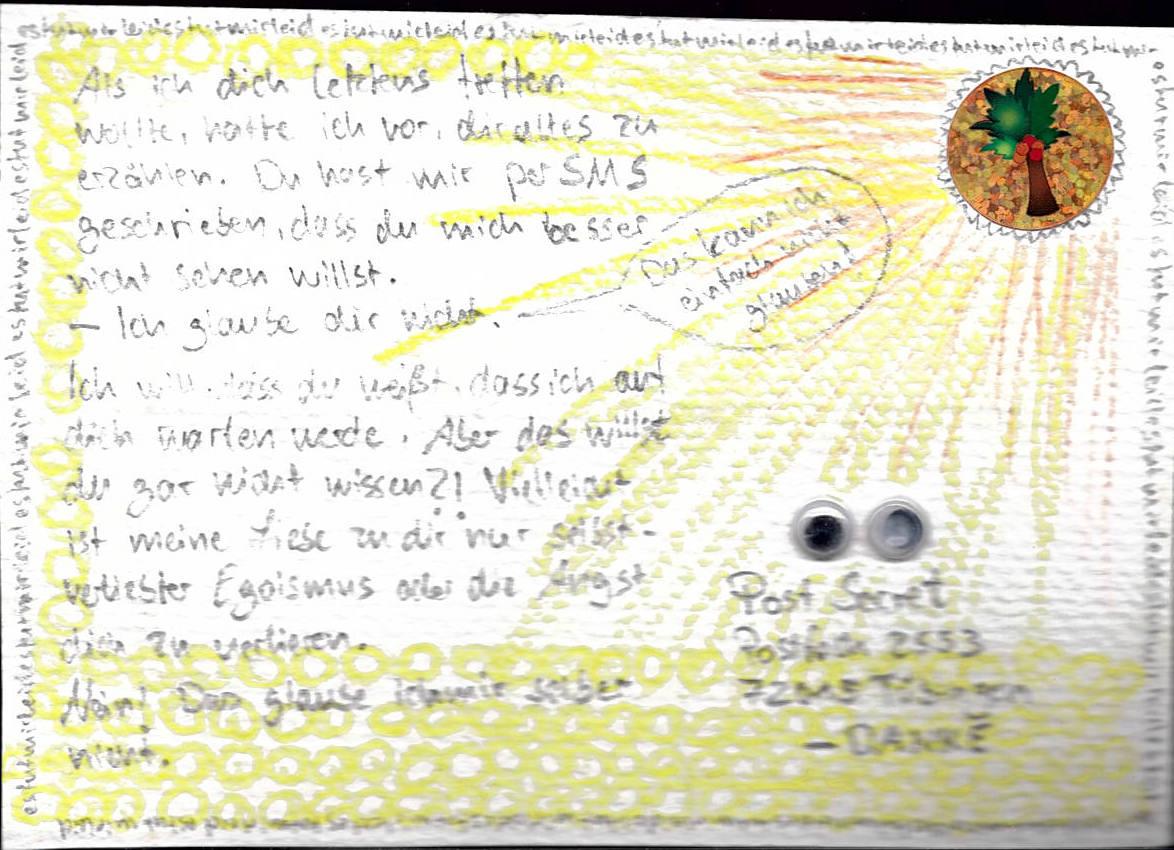 estutmirleidestutmirleidestutmirleidestutmirleidestutmirleidestutmirleidestutmirleidestutmir
Als ich dich letztens treffen
wollte, hatte ich vor, dir alles zu
erzählen. Du hast mir per SMS
geschrieben, dass du mich besser
nicht sehen willst.
– Ich glaube dir nicht.
Das kann ich
einfach nicht
glauben!
Ich will, dass du weißt, dass ich auf
dich warten werde. Aber das willst
du gar nicht wissen?! Vielleicht
ist meine Liebe zu dir nur selbst-
verliebter Egoismus oder die Angst
dich zu verlieren.
Nein! Das glaube ich mir selber
nicht.
Post Secret
Postfach 2553
Tübingen
– DANKE